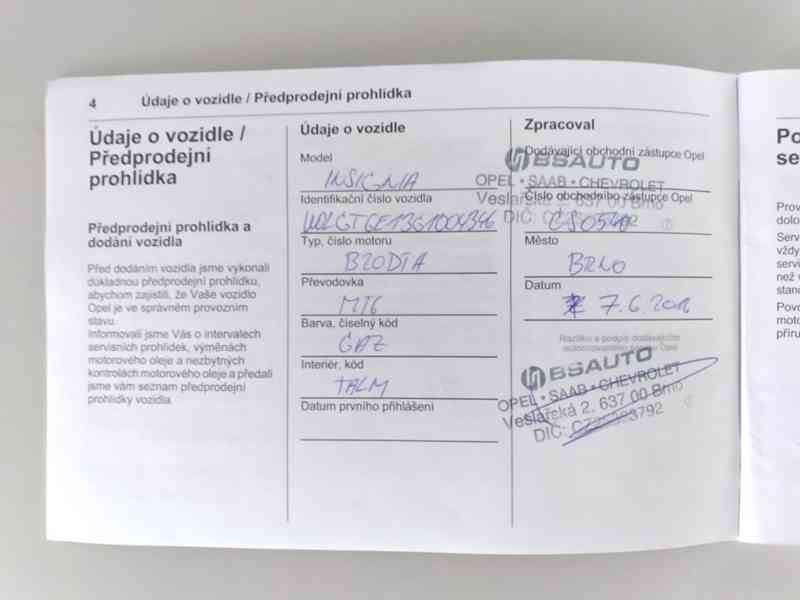 4 Údaje o vozidle / Předprodejní prohlídka
Údaje o vozidle /
Předprodejní
prohlídka
Předprodejní prohlídka a
dodání vozidla
Před dodáním vozidla jsme vykonali
důkladnou předprodejní prohlídku,
abychom zajistili, že Vaše vozidlo
Opel je ve správném provozním
stavu.
Informovali jsme Vás o intervalech
servisních prohlídek, výměnách
motorového oleje a nezbytných
kontrolách motorového oleje a předali
jsme vám seznam předprodejní
prohlídky vozidla.
Údaje o vozidle
Model
INSIGNIA
Identifikační číslo vozidla
Typ, číslo motoru
B20DTH
Převodovka
MT6
Barva, číselný kód
GAZ
Interiér, kód
TALM
Datum prvního přihlášení
Zpracoval
Dodávající obchodní zástupce Opel
BSAUTO
OPEL • SAAB • CHEVROLET
Číslo obchodního zástupce Opel
Veslařská 2, 637 00 Brno
DIČ:
Město
BRNO
Datum
7.6.2016
Razítko a podpis dodávajícího
autorizovaného Opel
BSAUTO
OPEL • SAAB • CHEVROLET
Veslařská 2, 637 00 Brno
DIČ:
Po
se
Prov
dolo
Serv
vždy
servi
než
stand
Povo
moto
příru